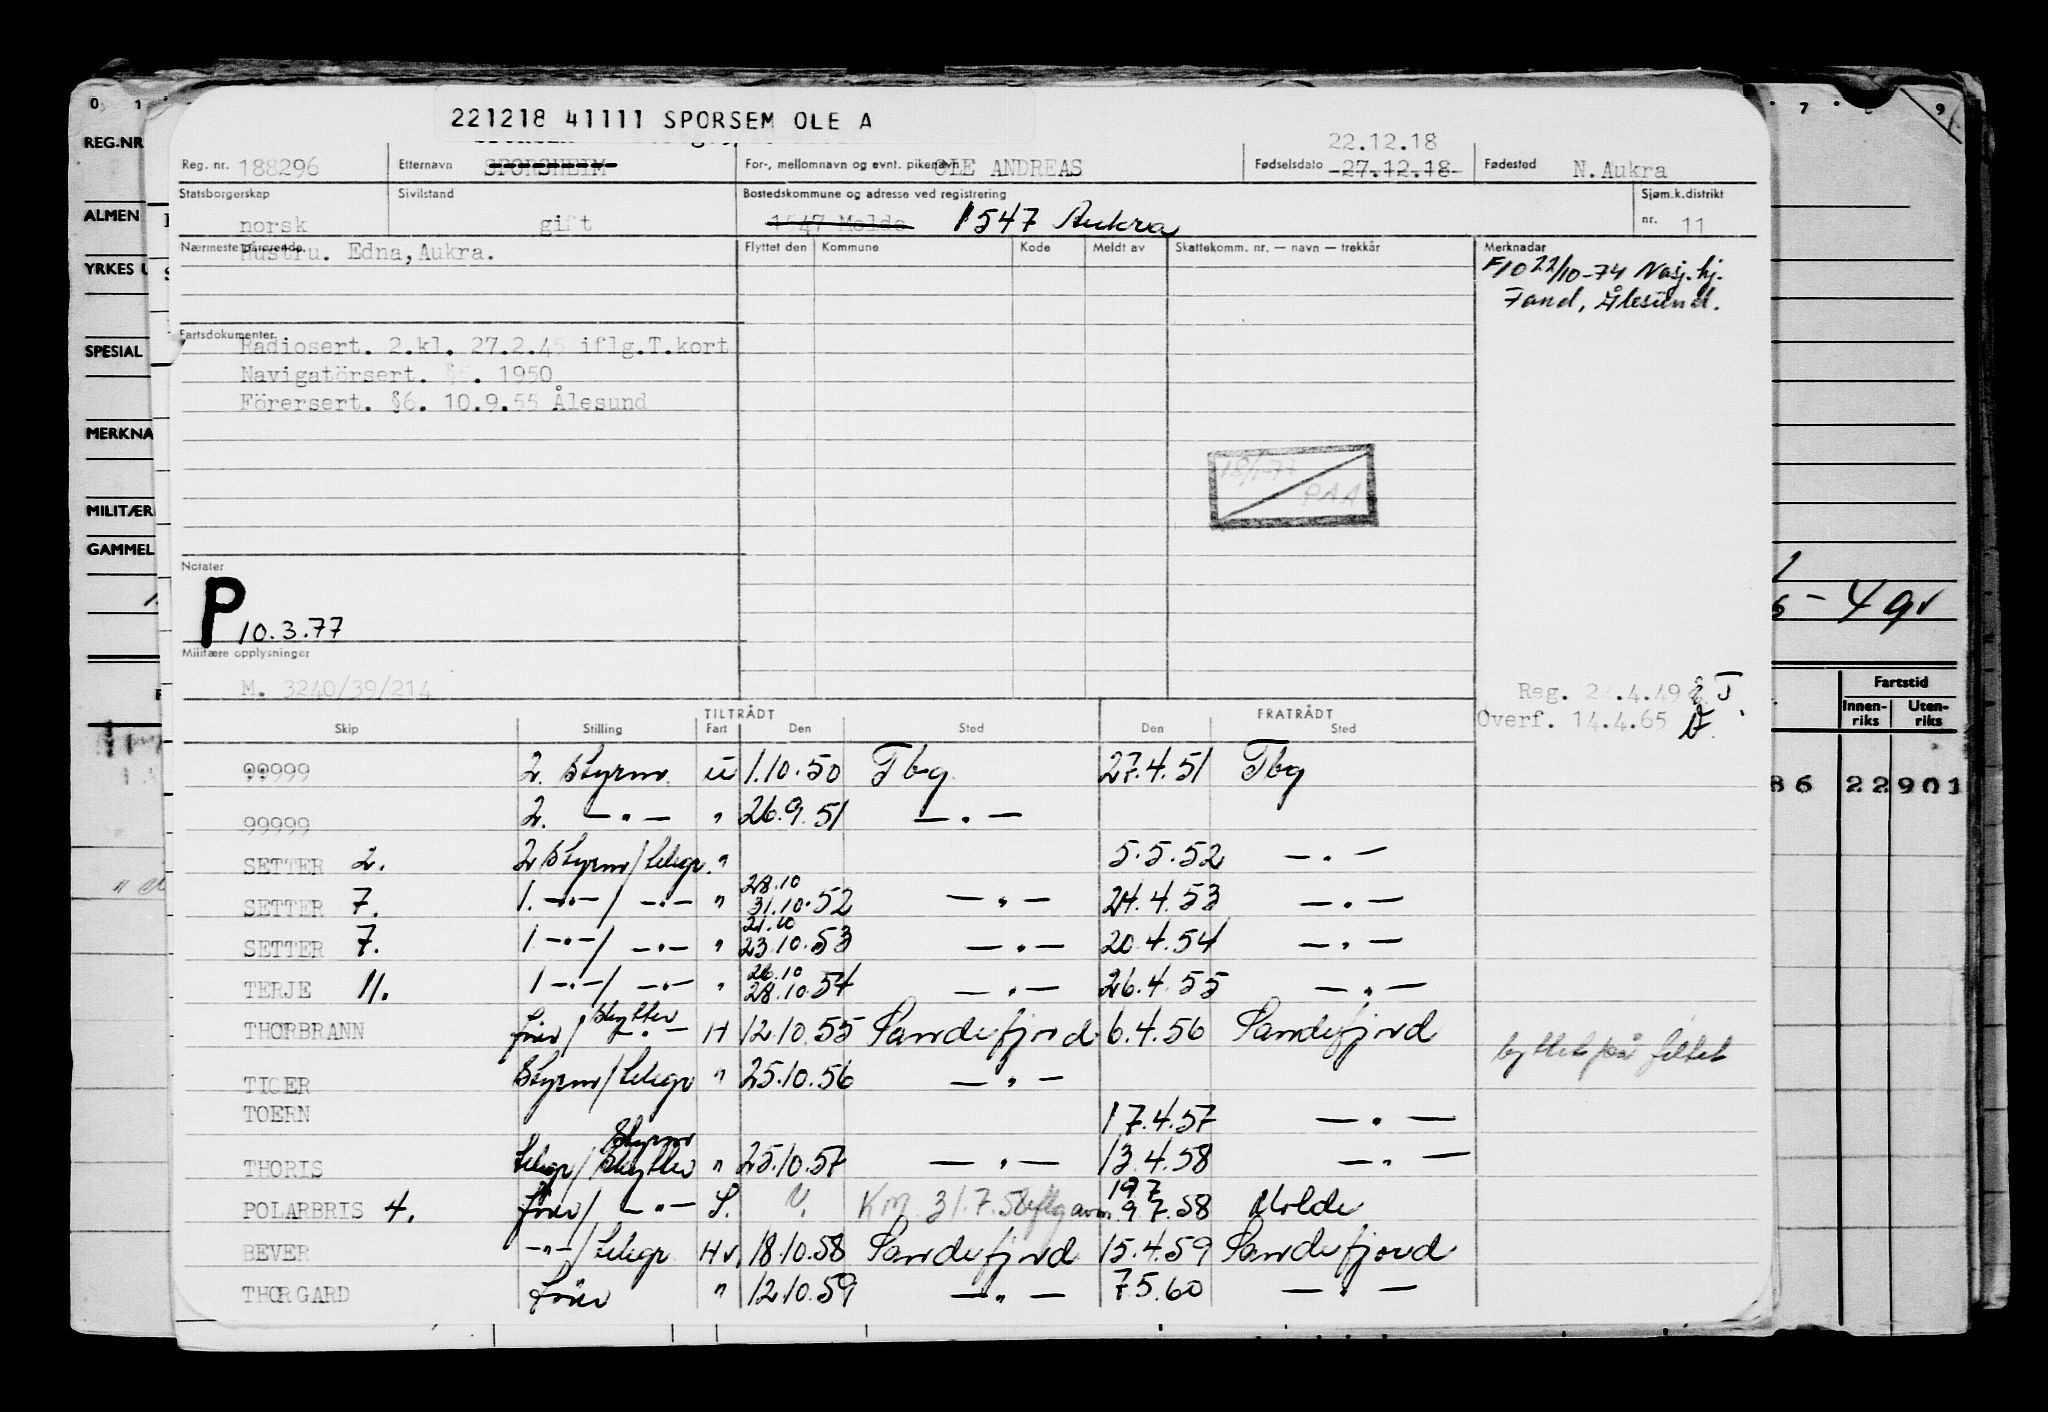 0 1 7 9
221218 41111 SPORSEM OLE A
REG.NR
Reg. nr. 188296 Etternavn SPORSHEIM For-, mellomnavn og evnt. pikenavn OLE ANDREAS Fødselsdato 22.12.18 27.12.18 Fødested N. Aukra
Statsborgerskap norsk Sivilstand gift Bostedskommune og adresse ved registrering 1547 Molde 1547 Aukra Sjøm.k.distrikt nr. 11
ALMEN
YRKES U
Nærmeste pårørende. Hustru. Edna, Aukra.
Flyttet den Kommune Kode Meldt av Skattekomm. nr. — navn — trekkår Merknadar
F10 22/10-74 Nasj. hj.
Fond, Ålesund.
SPESIAL
Fartsdokumenter
Radiosert. 2.kl. 27.2.45 iflg.T.kort
Navigatörsert. §5. 1950
Förersert. §6. 10.9.55 Ålesund
MERKNA
18/1-77
PAA
MILITÆR
GAMMEL
Notater
P 10.3.77
Militære opplysninger
M. 3240/39/214
Reg. 22.4.49
Overf. 14.4.65
Fartstid
Innen-riks Uten-riks
86 22901
TILTRÅDT FRATRÅDT
Skip Stilling Fart Den Sted Den Sted
99999 2. Styrm. u 1.10.50 Tbg 27.4.51 Tbg
99999 2. —"— " 26.9.51 —"—
SETTER 2. 2 Styrm/telegr. " 5.5.52 —"—
SETTER 7. 1. —"—/ —"— " 28.10 31.10.52 —"— 24.4.53 —"—
SETTER 7. 1 —"—/ —"— " 21.10 23.10.53 —"— 20.4.54 —"—
TERJE 11. 1 —"—/ —"— " 26.10 28.10.54 —"— 26.4.55 —"—
THORBRANN förer/ Skytter —"— H 12.10.55 Sandefjord 6.4.56 Sandefjord
TIGER Styrm/telegr " 25.10.56 —"— byttet på feltet
TOERN 17.4.57 —"—
THORIS telegr/ Styrm Skytter " 25.10.57 —"— 13.4.58 —"—
POLARBRIS 4. förer/ —"— S. KM 31.7.58 19.7 9.7.58 Molde
BEVER —"—/telegr Hv. 18.10.58 Sandefjord 15.4.59 Sandefjord
THORGARD förer " 12.10.59 —"— 7.5.60 —"—